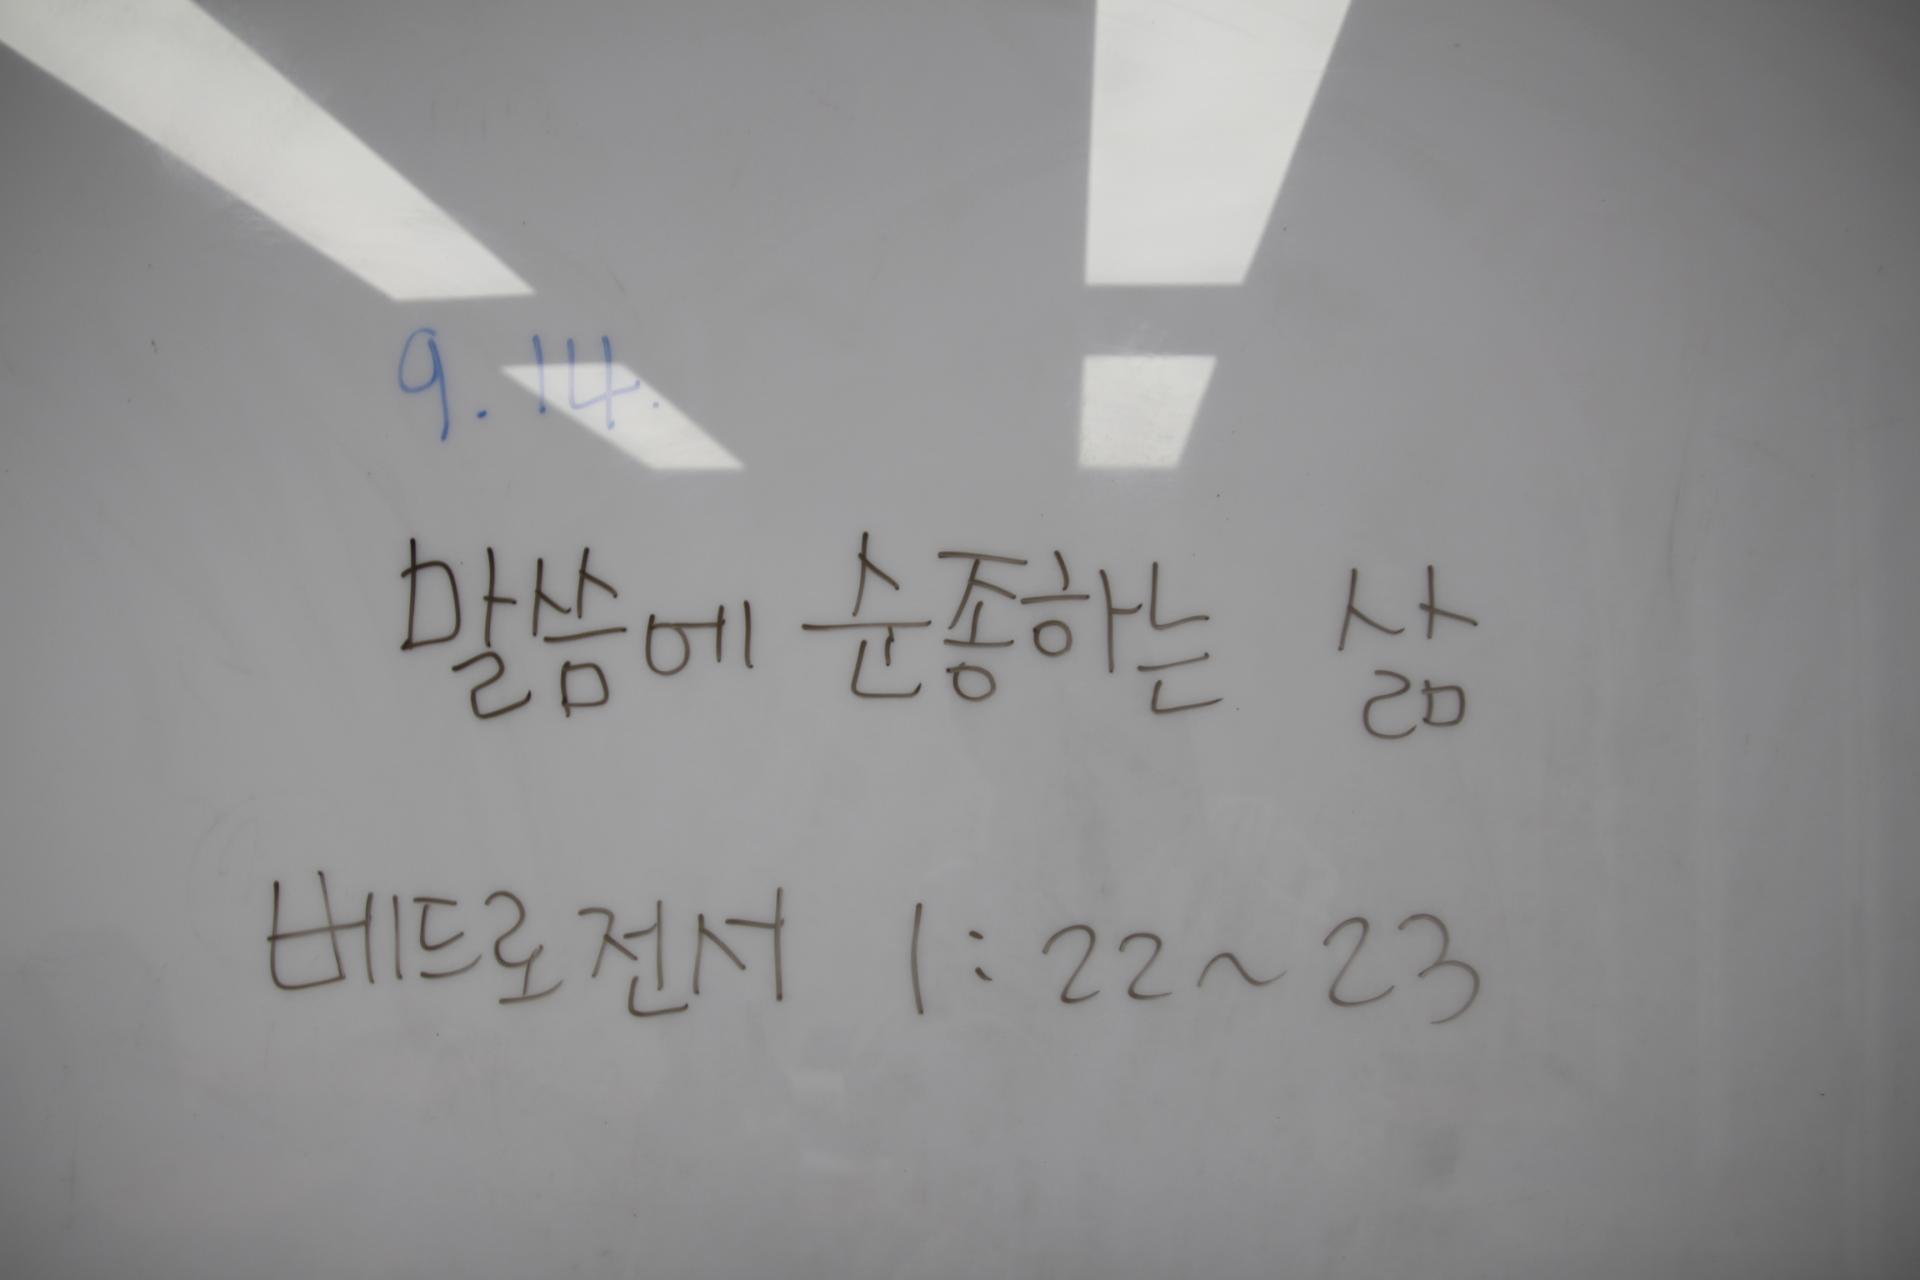 9.14.
말씀에 순종하는 삶
베드로전서 1:22~23